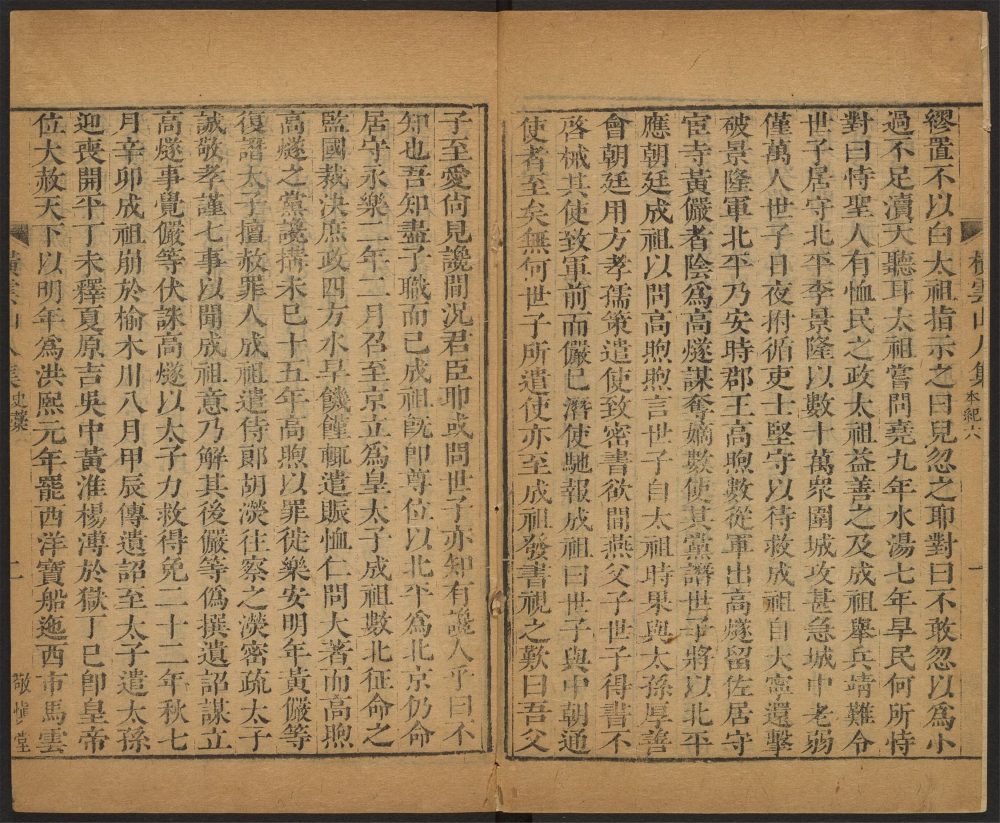 橫雲山人集 本紀六 一
繆置不以白太祖指示之曰兒忽之耶對曰不敢忽以爲小
過不足瀆天聽耳太祖嘗問堯九年水湯七年旱民何所恃
對曰恃聖人有恤民之政太祖益善之及成祖舉兵靖難令
世子居守北平李景隆以數十萬衆圍城攻甚急城中老弱
僅萬人世子日夜拊循吏士堅守以待救成祖自大寧還擊
破景隆軍北平乃安時郡王高煦數從軍出高燧留佐居守
宦寺黃儼者陰爲高燧謀奪嫡數使其黨譖世子將以北平
應朝廷成祖以問高煦煦言世子自太祖時果與太孫厚善
會朝廷用方孝孺策遣使致密書欲間燕父子世子得書不
啓械其使致軍前而儼已潛使馳報成祖曰世子與中朝通
使者至矣無何世子所遣使亦至成祖發書視之歎曰吾父
子至愛尙見讒間況君臣卽或問世子亦知有讒人乎曰不
知也吾知盡子職而已成祖旣卽尊位以北平爲北京仍命
居守永樂二年二月召至京立爲皇太子成祖數北征命之
監國裁決庶政四方水旱饑饉輒遣賑恤仁問大著而高煦
高燧之黨讒搆未已十五年高煦以罪徙樂安明年黃儼等
復譖太子擅赦罪人成祖遣侍郞胡濙往察之濙密疏太子
誠敬孝謹七事以聞成祖意乃解其後儼等僞撰遺詔謀立
高燧事覺儼等伏誅高燧以太子力救得免二十二年秋七
月辛卯成祖崩於榆木川八月甲辰傳遺詔至太子遣太孫
迎喪開平丁未釋夏原吉吳中黃淮楊溥於獄丁巳卽皇帝
位大赦天下以明年爲洪熙元年罷西洋寶船迤西市馬雲
橫雲山人集 史藳 二 敬愼堂